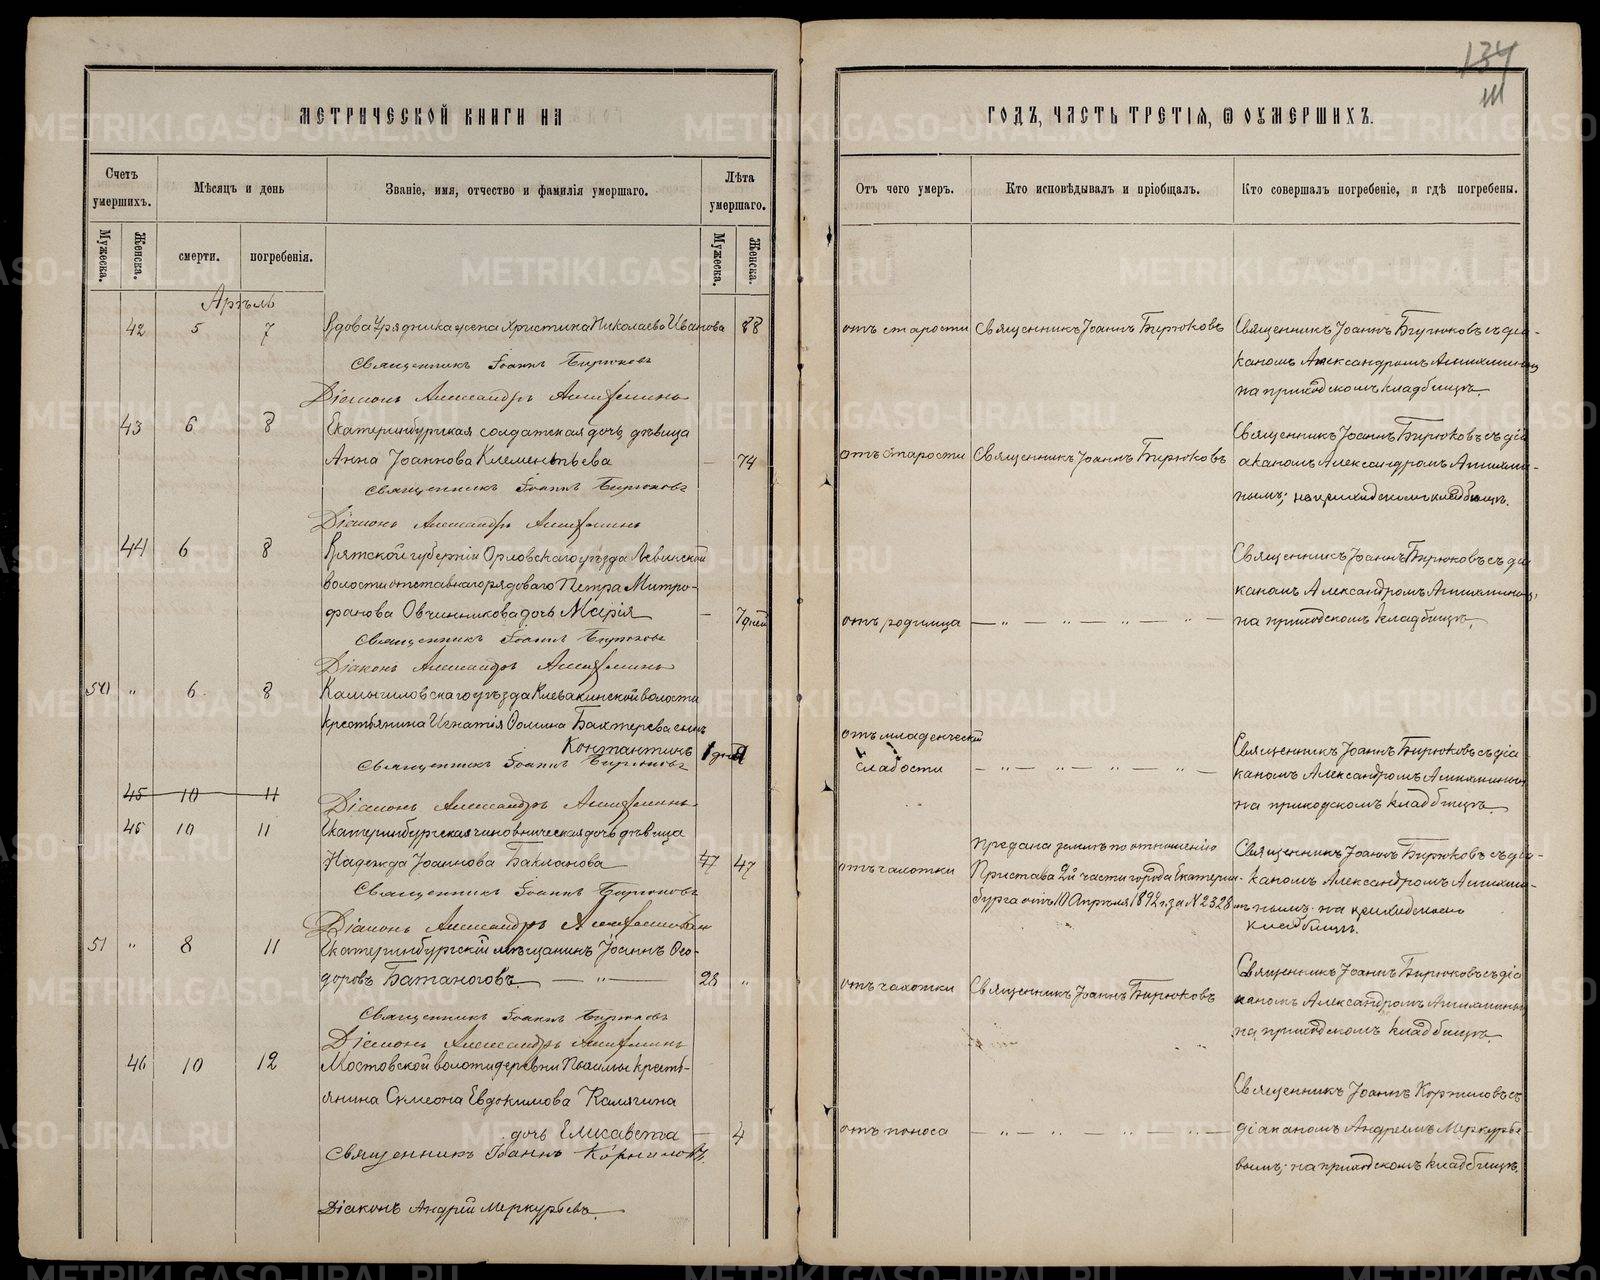 134
111
МЕТРИЧЕСКОЙ КНИГИ НА
ГОДЪ, ЧАСТЬ ТРЕТІЯ, Ѿ ОУМЕРШИХЪ.
Счетъ умершихъ.
Мѣсяцъ и день
Званіе, имя, отчество и фамилія умершаго.
Лѣта умершаго.
Отъ чего умеръ.
Кто исповѣдывалъ и пріобщалъ.
Кто совершалъ погребеніе, и гдѣ погребены.
Мужеска.
Женска.
смерти.
погребенія.
Мужеска.
Женска.
Апрѣль
42 5 7 Вдова Урядника жена Христина Николаева Иванова 88
отъ старости Священникъ Іоаннъ Бирюковъ Священникъ Іоаннъ Бирюковъ съ діа-
кономъ Александромъ
на приходскомъ кладбищѣ.
Священникъ Іоаннъ Бирюковъ
Діаконъ Александръ
43 6 8 Екатеринбургская солдатская дочь, дѣвица
Анна Іоаннова Клементьева — 74
отъ старости Священникъ Іоаннъ Бирюковъ Священникъ Іоаннъ Бирюковъ съ діа
акономъ Александромъ
нымъ; на приходскомъ кладбищѣ.
Священникъ Іоаннъ Бирюковъ
Діаконъ Александръ
44 6 8 Вятской губерніи Орловскаго уѣзда Левинской
волости отставнаго рядоваго Петра Митро-
фанова Овчинникова дочь Марія — 7 дней
отъ родимца — " — " — " — " — Священникъ Іоаннъ Бирюковъ съ діа
кономъ Александромъ
на приходскомъ кладбищѣ.
Священникъ Іоаннъ Бирюковъ
Діаконъ Александръ
50 " 6 8 Камышловскаго уѣзда Клевакинской волости
крестьянина Игнатія Ѳомина Бахтерева сынъ
Константинъ
отъ младенческой
слабости — " — " — " — " — Священникъ Іоаннъ Бирюковъ съ діа
кономъ Александромъ
на приходскомъ кладбищѣ
Священникъ Іоаннъ Бирюковъ
45 10 11
Діаконъ Александръ
45 10 11 Екатеринбургская чиновническая дочь дѣвица
Надежда Іоаннова Бакланова 47 47
отъ чахотки Предана землѣ по отношенію
Пристава 2й части города Екатерин-
бурга отъ 10 Апрѣля 1892 г. за № 2328
Священникъ Іоаннъ Бирюковъ съ діа-
кономъ Александромъ
нымъ на приходскомъ
кладбищѣ.
Священникъ Іоаннъ Бирюковъ
Діаконъ Александръ
51 " 8 11 Екатеринбургскій мѣщанинъ Іоаннъ Ѳео-
доровъ Батаноговъ — " — 28 "
отъ чахотки Священникъ Іоаннъ Бирюковъ Священникъ Іоаннъ Бирюковъ съ діа
кономъ Александромъ
на приходскомъ кладбищѣ.
Священникъ Іоаннъ Бирюковъ
Діаконъ Александръ
46 10 12 Мостовской волости деревни крестъ-
янина Симеона Евдокимова Калягина
дочь Елисавета — 4
отъ поноса — " — " — " — " — Священникъ Іоаннъ Корниловъ съ
діакономъ Андреемъ Меркурье
вымъ; на приходскомъ кладбищѣ.
Священникъ Іоаннъ Корниловъ.
Діаконъ Андрей Меркурьевъ
METRIKI.GASO-URAL.RU